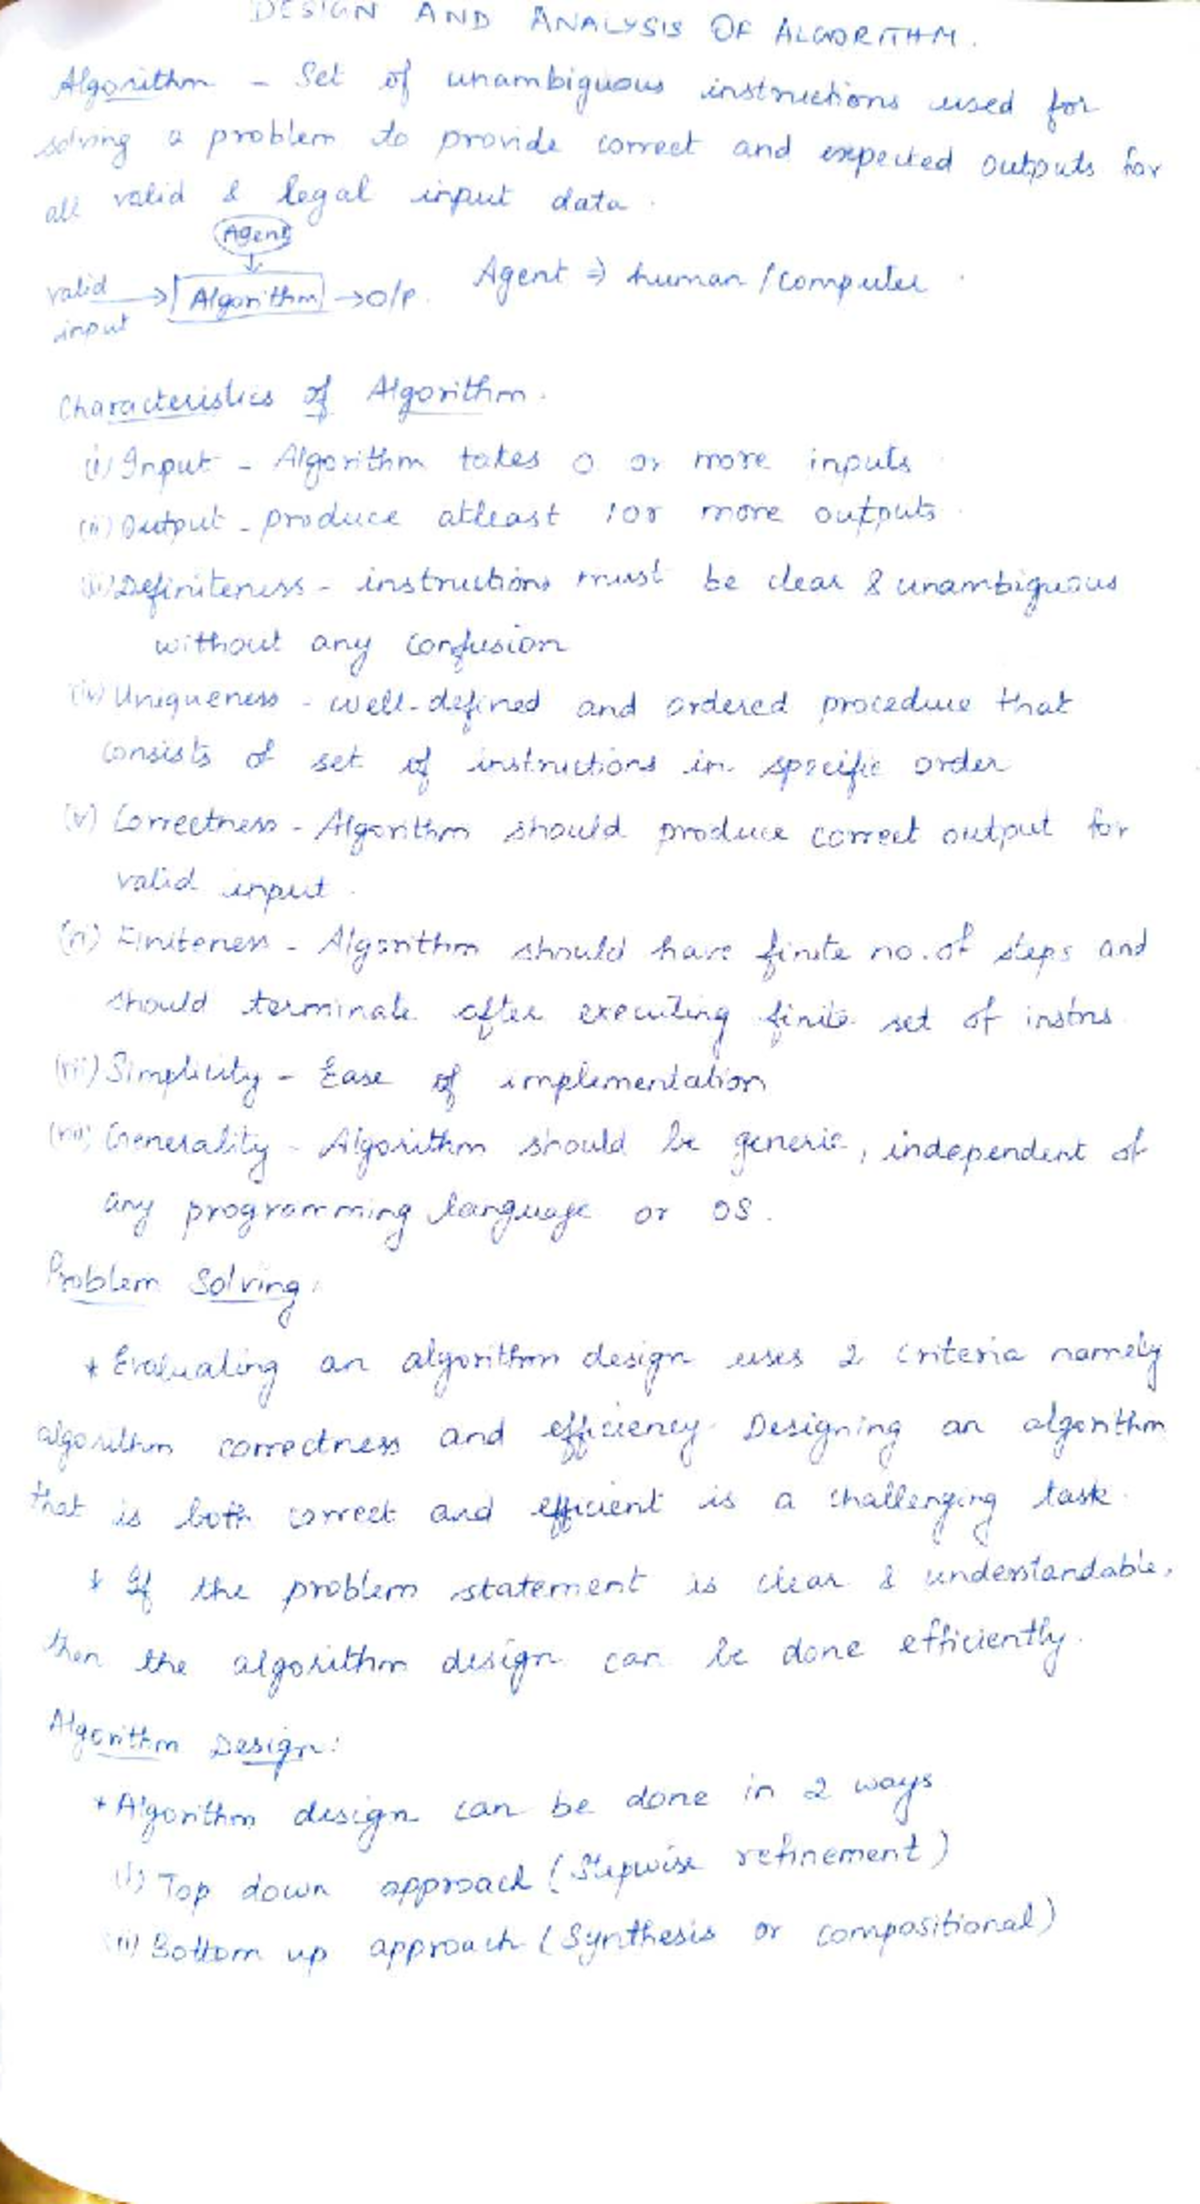 DESIGN AND ANALYSIS OF ALGORITHM.
Algorithm - Set of unambiguous instructions used for
solving a problem to provide correct and expected outputs for
all valid & legal input data.
Agent
valid input → Algorithm → O/P. Agent ⇒ human / computer.
Characteristics of Algorithm.
(i) Input - Algorithm takes 0 or more inputs
(ii) Output - produce atleast 1 or more outputs.
(iii) Definiteness - instructions must be clear & unambiguous
without any confusion
(iv) Uniqueness - well-defined and ordered procedure that
consists of set of instructions in specific order
(v) Correctness - Algorithm should produce correct output for
valid input.
(vi) Finiteness - Algorithm should have finite no. of steps and
should terminate after executing finite set of instns.
(vii) Simplicity - Ease of implementation
(viii) Generality - Algorithm should be generic, independent of
any programming language or OS.
Problem Solving:
* Evaluating an algorithm design uses 2 criteria namely
algorithm correctness and efficiency. Designing an algorithm
that is both correct and efficient is a challenging task.
* If the problem statement is clear & understandable,
then the algorithm design can be done efficiently.
Algorithm Design:
* Algorithm design can be done in 2 ways
(i) Top down approach (Stepwise refinement)
(ii) Bottom up approach (Synthesis or compositional)